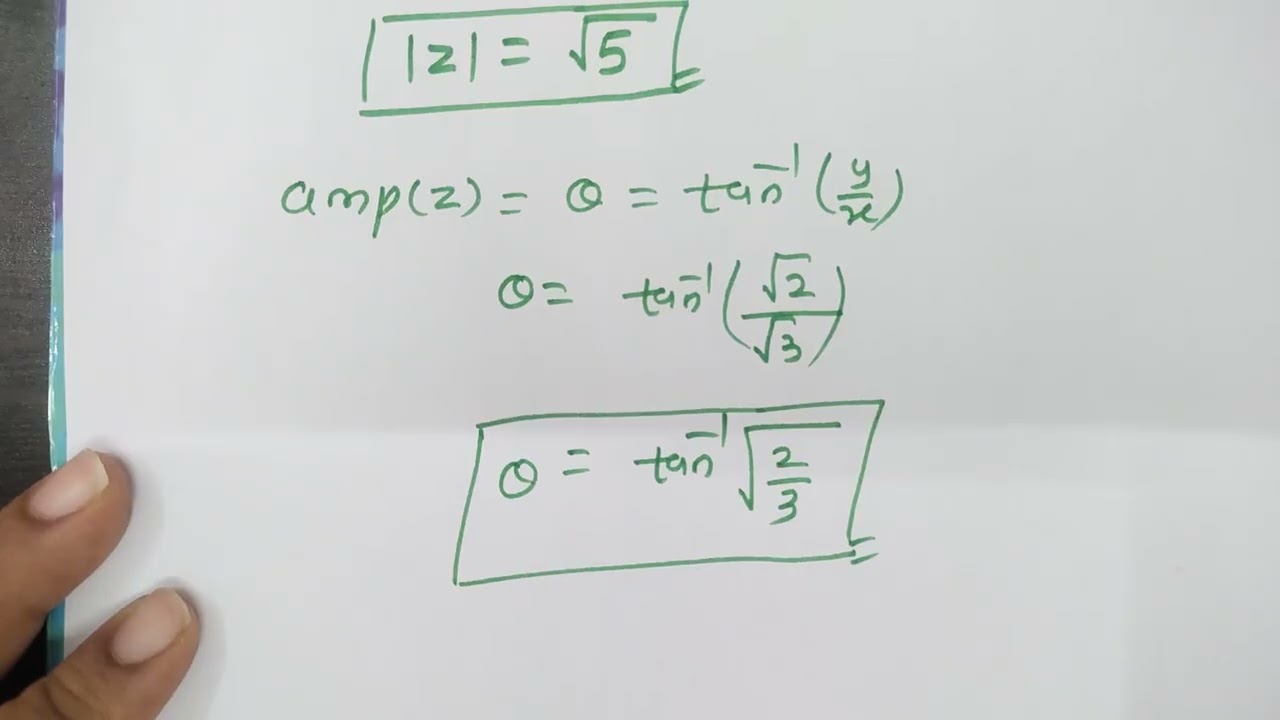 |z| = √5
amp(z) = θ = tan⁻¹(y/x)
θ = tan⁻¹(√2/√3)
θ = tan⁻¹√(2/3)